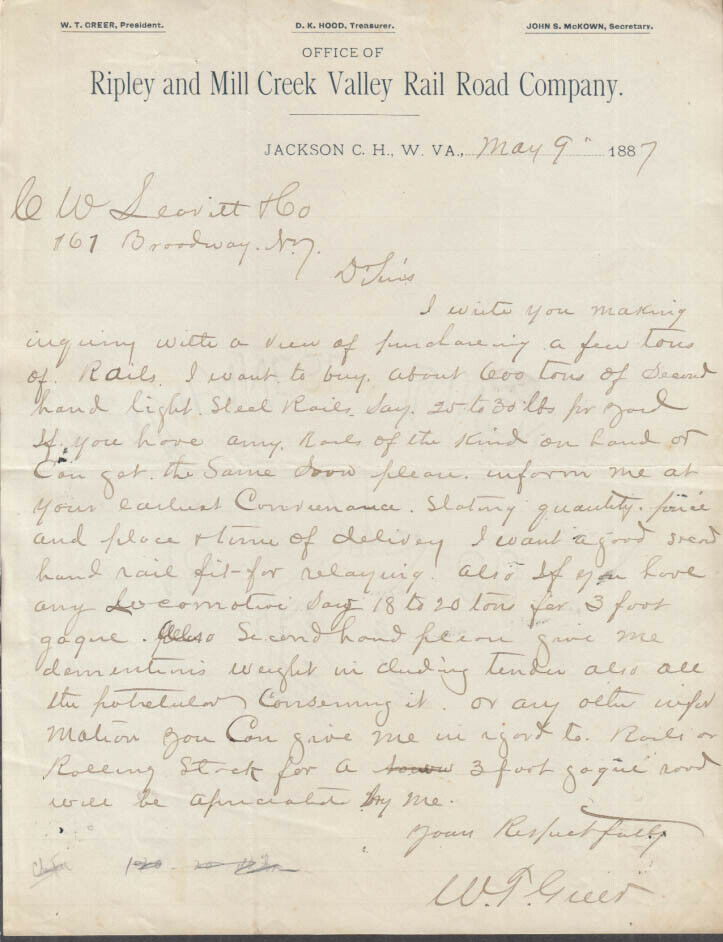 W. T. GREER, President. D. K. HOOD, Treasurer. JOHN S. McKOWN, Secretary.
OFFICE OF
Ripley and Mill Creek Valley Rail Road Company.
JACKSON C. H., W. VA., May 9" 1887
C W Leavitt & Co
161 Broadway. N.Y.
D Sirs
I write you making
inquiry with a view of purchaseing a few tons
of. Rails. I want to buy. about 600 tons of Second
hand light. Steel Rails. Say. 25 to 30 lbs pr yard
If you have any. Rails of the Kind on hand or
Can get. the Same Soon please. inform me at
your earliest Convienance. Stating quantity. price
and place & time of delivey I want a good second
hand rail fit-for relaying. also If you have
any Locomotive Say 18 to 20 tons for 3 foot
gaque. Also Second hand please give me
dementions weight in cluding tender also all
the Conserning it. or any other infor
mation you Can give me in rgard to. Rails or
Rolling Stock for a 3 foot gaque road
will be apreciated by me.
yours Respectfully
W. T. Greer